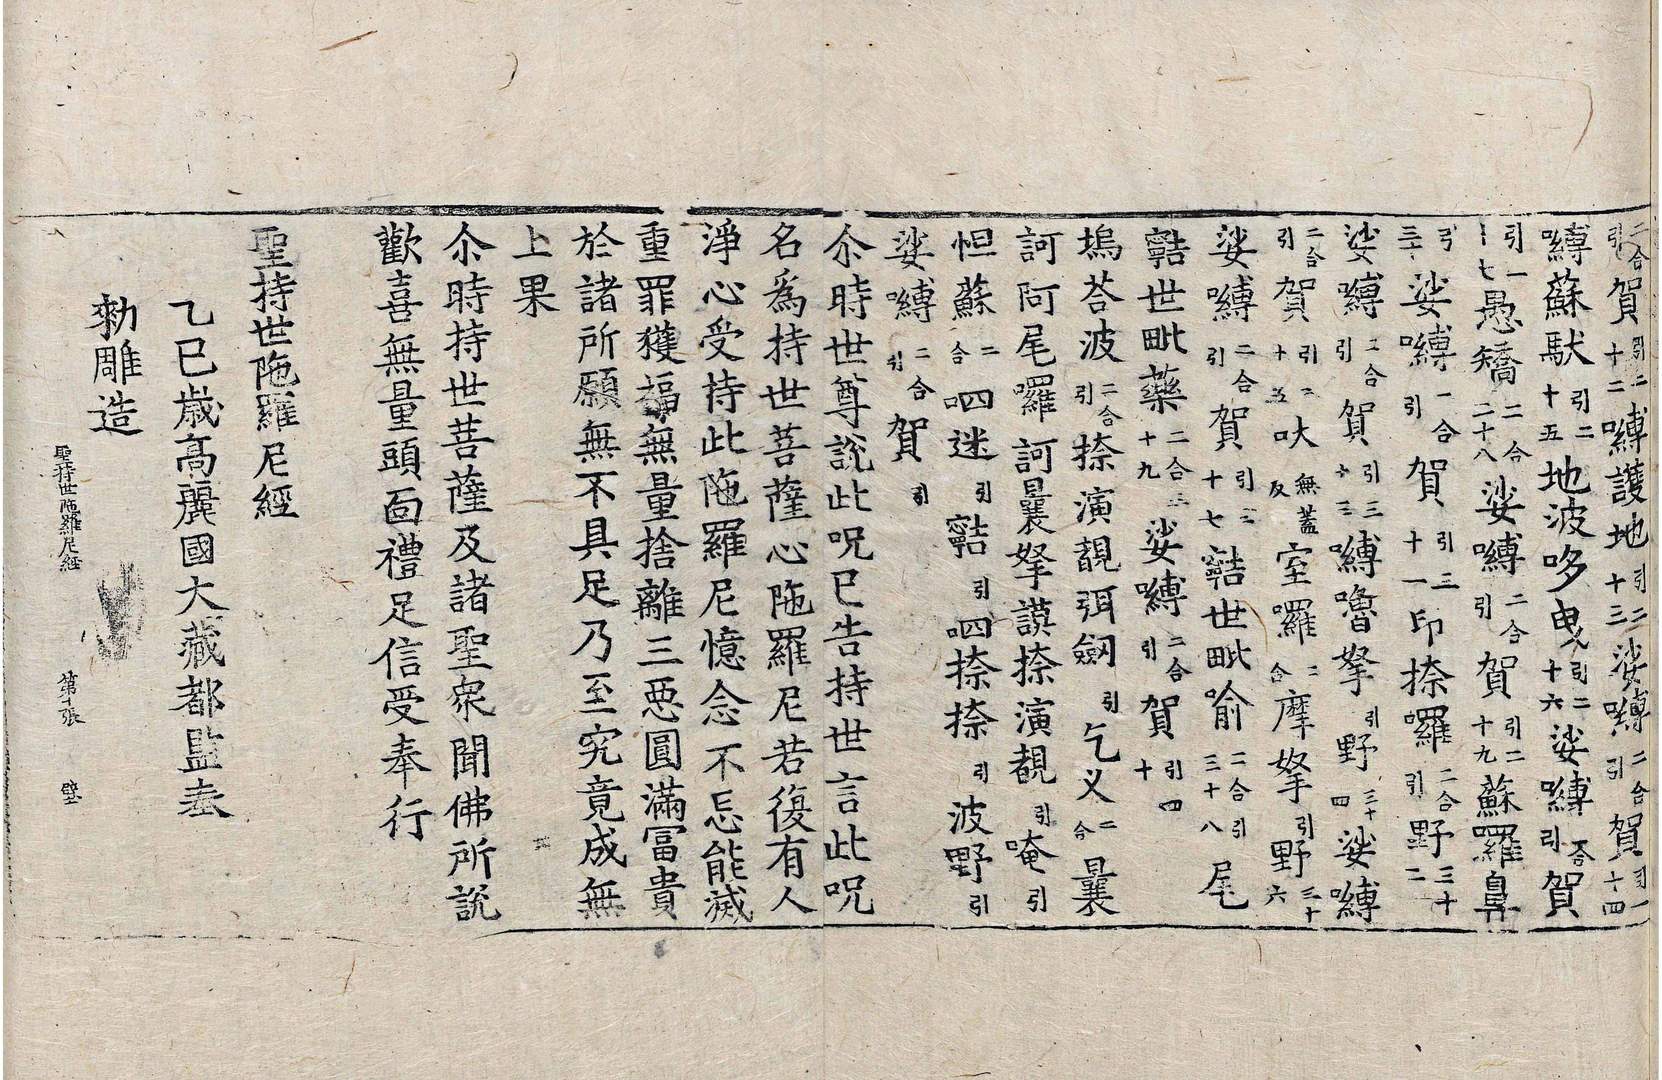 二合引賀引二十二嚩護地引二十三娑嚩二合引賀引二十四
嚩蘇馱引二十五地波哆曳引二十六娑嚩二合引賀
引二十七愚矯二合二十八娑嚩二合引賀引二十九蘇囉鼻
引三十娑嚩二合引賀引三十一印捺囉二合引野三十二
娑嚩二合引賀引三十三嚩嚕拏引野三十四娑嚩
二合引賀引三十五吠無蓋反室囉二合摩拏引野三十六
娑嚩二合引賀引三十七𩕳世毗喻二合引三十八尾
𩕳世毗藥二合三十九娑嚩二合引賀引四十
塢荅波二合引捺演覩弭劒引乞义二合曩
訶阿尾囉訶曩拏謨捺演覩引唵引
怛蘇二合呬迷引𩕳引呬捺捺引波野引
娑嚩二合引賀引
尒時世尊說此呪已告持世言此呪
名爲持世菩薩心陁羅尼若復有人
淨心受持此陁羅尼憶念不忘能滅
重罪獲福無量捨離三惡圓滿冨貴
於諸所願無不具足乃至究竟成無
上果
尒時持世菩薩及諸聖衆聞佛所說
歡喜無量頭面禮足信受奉行
聖持世陁羅尼經
乙巳歲高麗國大藏都監奉
勅雕造
聖持世陁羅尼經 第十張 壁